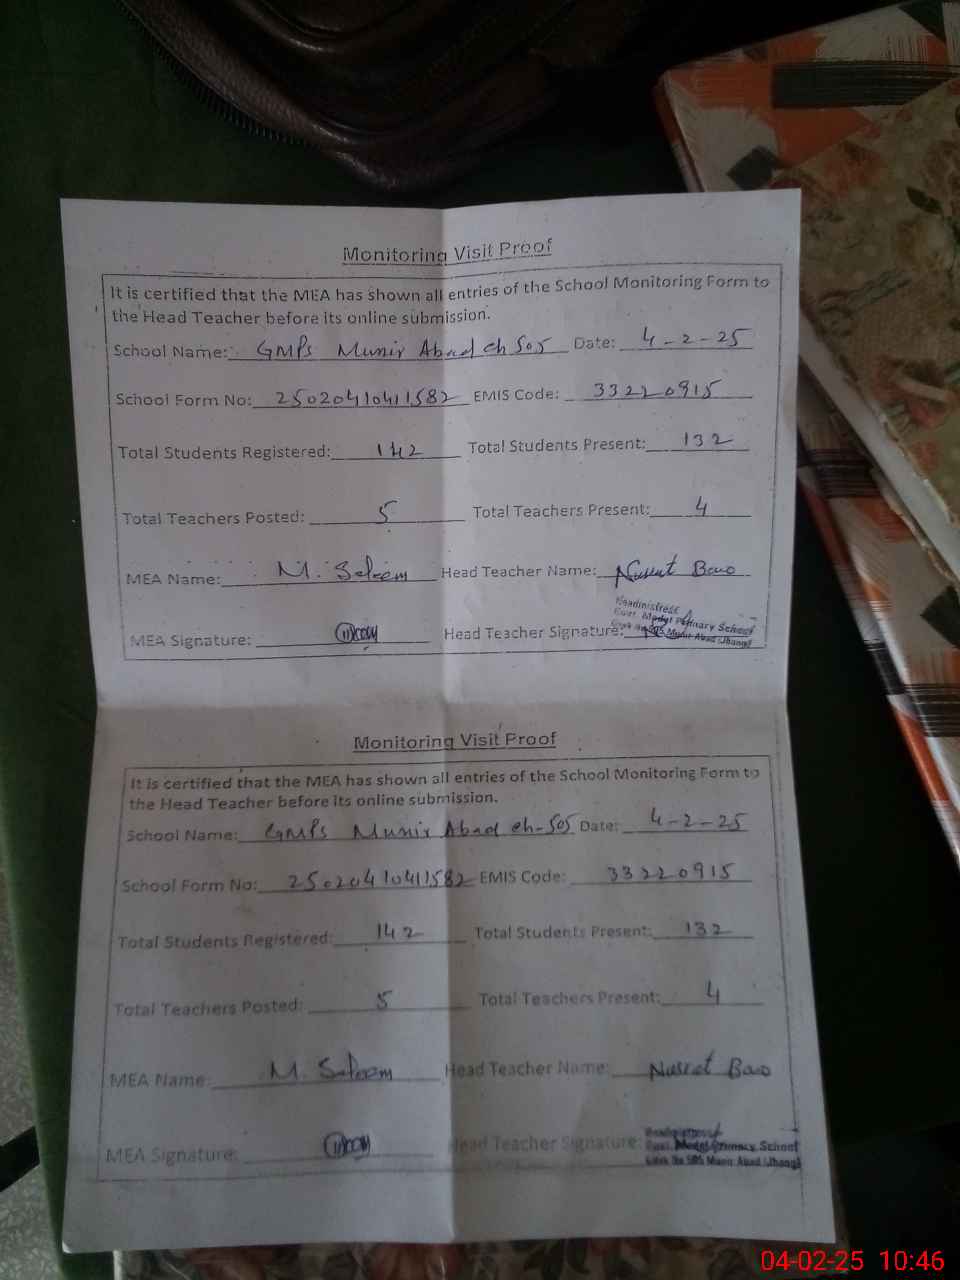 Monitoring Visit Proof
It is certified that the MEA has shown all entries of the School Monitoring Form to
the Head Teacher before its online submission.
School Name: GMPS Munir Abad ch 505 Date: 4-2-25
School Form No: 2502041041582 EMIS Code: 33220915
Total Students Registered: 142 Total Students Present: 132
Total Teachers Posted: 5 Total Teachers Present: 4
MEA Name: M. Saleem Head Teacher Name: Nusrat Bano
Headmistress
Govt. Model Primary School
MEA Signature: Head Teacher Signature: Chak No 505 Munir Abad (Jhang)
Monitoring Visit Proof
It is certified that the MEA has shown all entries of the School Monitoring Form to
the Head Teacher before its online submission.
School Name: GMPS Munir Abad ch-505 Date: 4-2-25
School Form No: 2502041041582 EMIS Code: 33220915
Total Students Registered: 142 Total Students Present: 132
Total Teachers Posted: 5 Total Teachers Present: 4
MEA Name: M. Saleem Head Teacher Name: Nusrat Bano
Headmistress
MEA Signature: Head Teacher Signature: Govt. Model Primary School
Chak No 505 Munir Abad (Jhang)
04-02-25 10:46